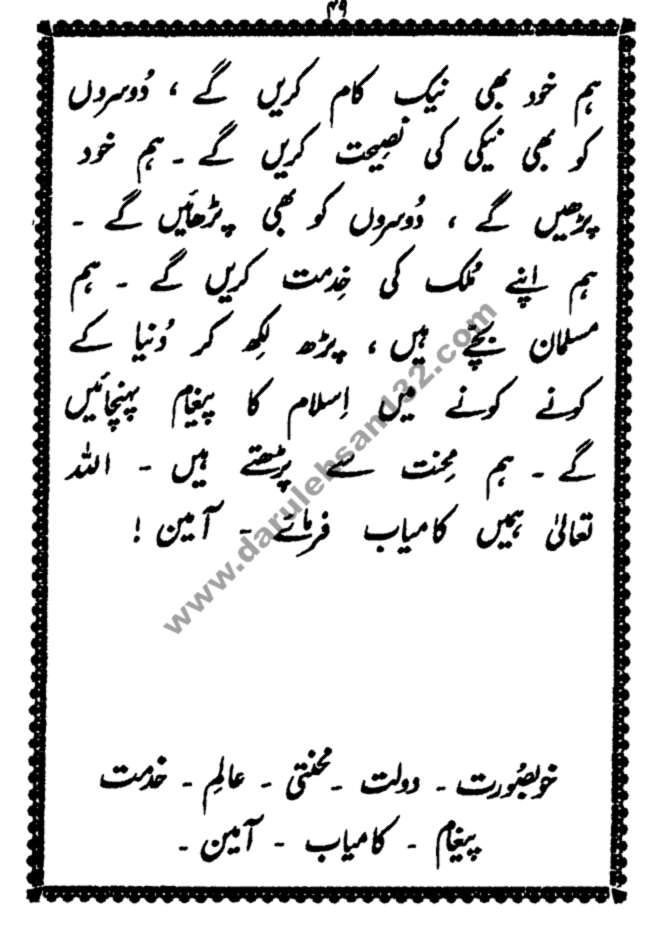 ۴۹
ہم خود بھی نیک کام کریں گے ، دُوسروں
کو بھی نیکی کی نصِیحت کریں گے ۔ ہم خود
پڑھیں گے ، دُوسروں کو بھی پڑھائیں گے ۔
ہم اپنے مُلک کی خِدمت کریں گے ۔ ہم
مسلمان بچّے ہیں ، پڑھ لِکھ کر دُنیا کے
کونے کونے میں اِسلام کا پیغام پہنچائیں
گے ۔ ہم مِحنت سے پڑھتے ہیں ۔ اللہ
تعالیٰ ہمیں کامیاب فرمائے ۔ آمین !
www.darulehsan132.com
خوبصُورت ۔ دولت ۔ محنتی ۔ عالِم ۔ خدمت
پیغام ۔ کامیاب ۔ آمین ۔